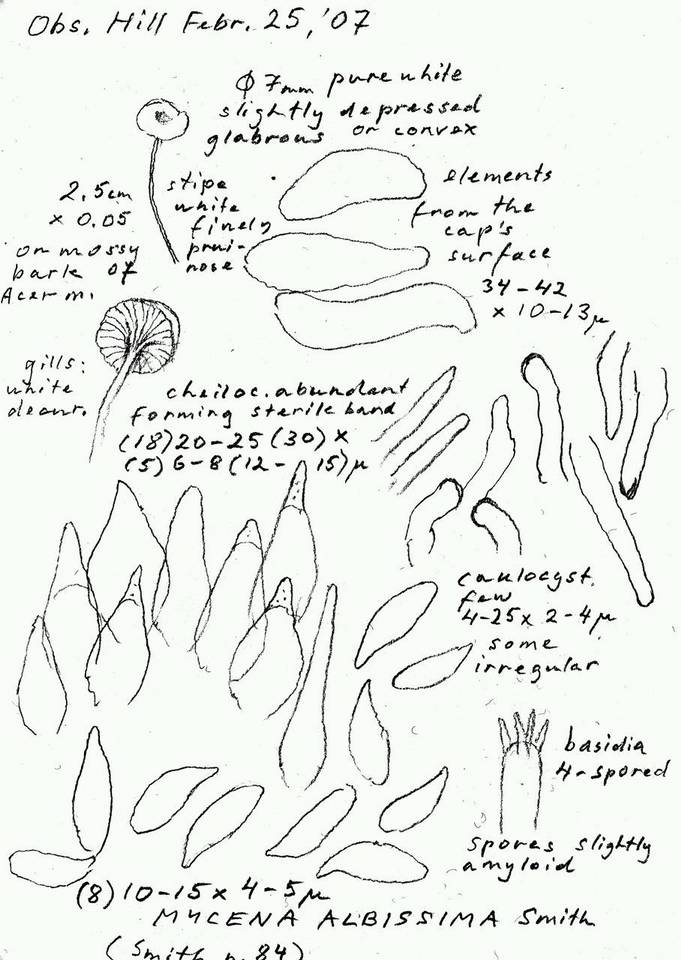 Obs. Hill Febr. 25, '07
φ 7mm pure white
slightly depressed
glabrous or convex
2.5cm
x 0.05
on mossy
bark of
Acer m.
stipe
white
finely
prui-
nose
elements
from the
cap's
surface
34-42
x 10-13µ
gills:
white
decur.
cheiloc. abundant
forming sterile band
(18)20-25(30) x
(5)6-8(12-15)µ
caulocyst.
few
4-25x2-4µ
some
irregular
basidia
4-spored
spores slightly
amyloid
(8)10-15x4-5µ
MYCENA ALBISSIMA Smith
(Smith p. 84)